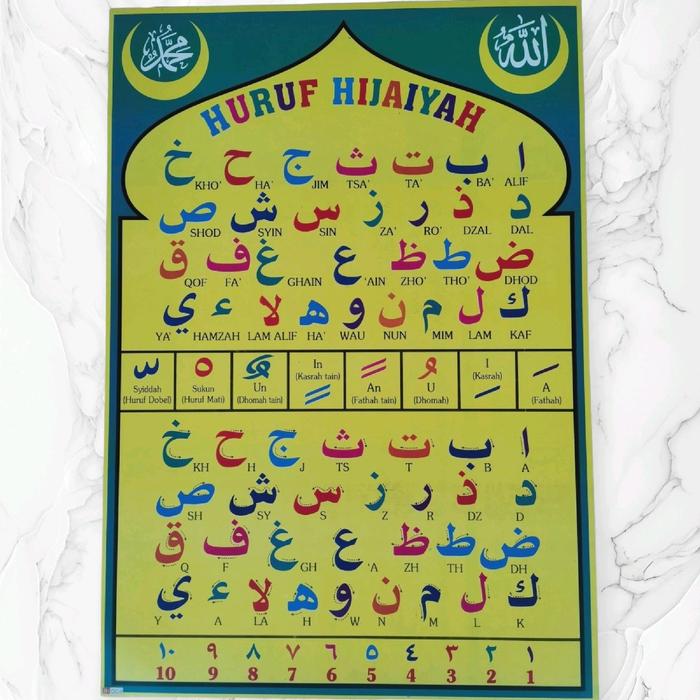 محمد
الله
HURUF HIJAIYAH
ا ب ت ث ج ح خ
KHO' HA' JIM TSA' TA' BA' ALIF
د ذ ر ز س ش ص
SHOD SYIN SIN ZA' RO' DZAL DAL
ض ط ظ ع غ ف ق
QOF FA' GHAIN 'AIN ZHO' THO' DHOD
ك ل م ن و ه لا ء ي
YA' HAMZAH LAM ALIF HA' WAU NUN MIM LAM KAF
Syiddah (Huruf Dobel)
Sukun (Huruf Mati)
Un (Dhomah tain)
In (Kasrah tain)
An (Fathah tain)
U (Dhomah)
I (Kasrah)
A (Fathah)
ا ب ت ث ج ح خ
KH H J TS T B A
د ذ ر ز س ش ص
SH SY S Z R DZ D
ض ط ظ ع غ ف ق
Q F GH 'A ZH TH DH
ك ل م ن و ه لا ء ي
Y A LA H W N M L K
١ ٢ ٣ ٤ ٥ ٦ ٧ ٨ ٩ ١٠
10 9 8 7 6 5 4 3 2 1